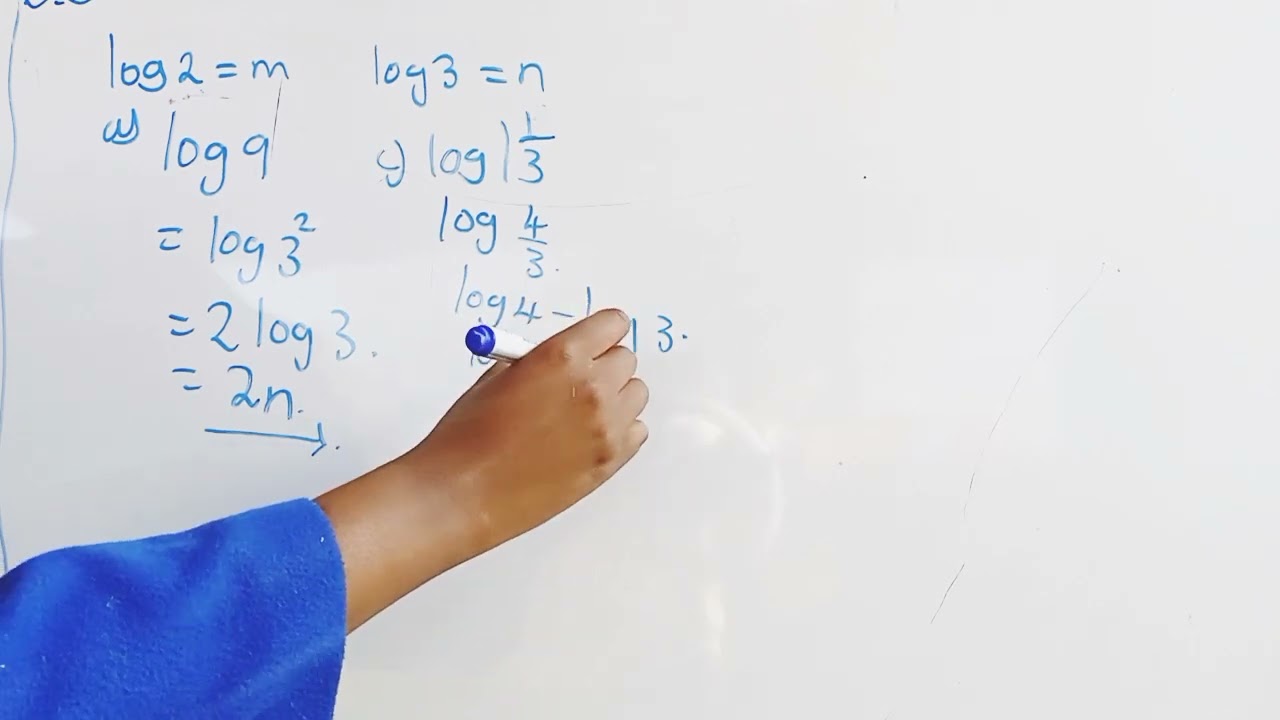 log 2 = m
log 3 = n
a) log 9
= log 3²
= 2 log 3.
= 2n.
c) log 1 1/3
log 4/3.
log 4 -
3.